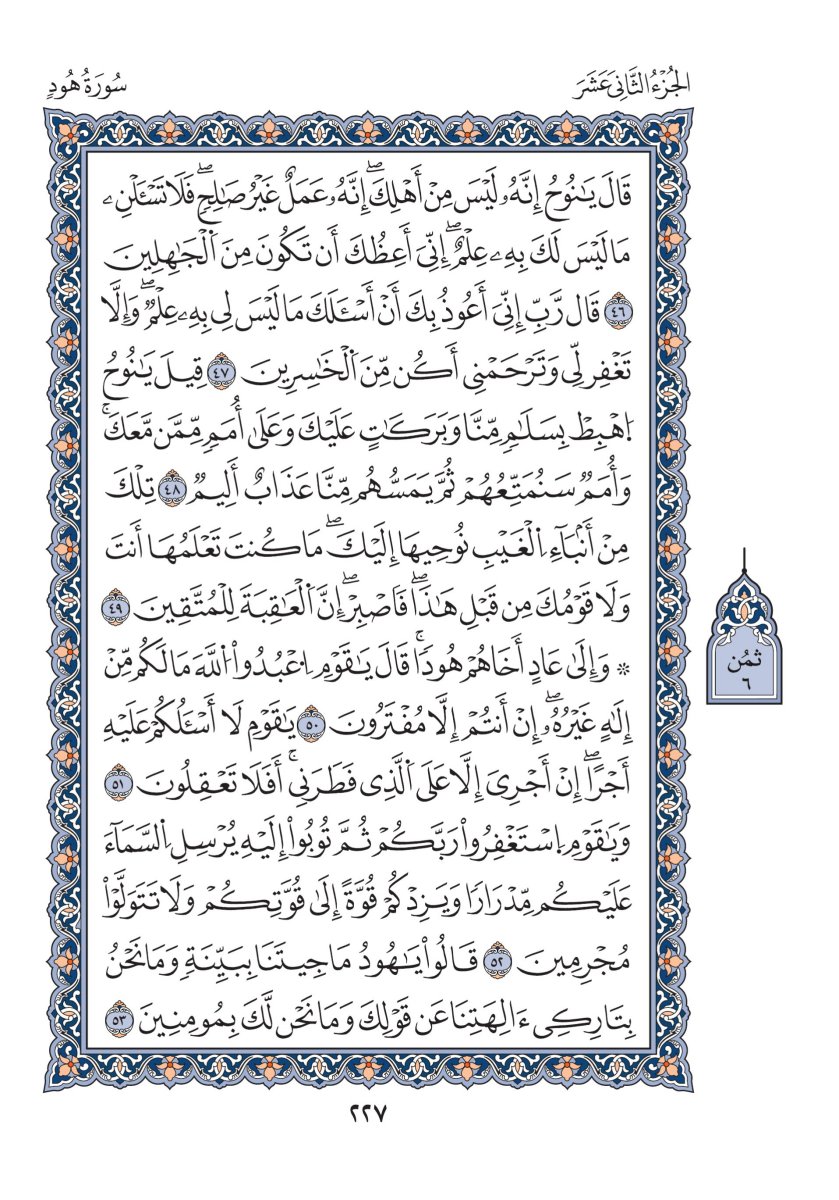 الجُزْءُ الثَّانِيَ عَشَرَ
سُورَةُ هُودٍ
قَالَ يَـٰنُوحُ إِنَّهُۥ لَيْسَ مِنْ أَهْلِكَۖ إِنَّهُۥ عَمَلٌ غَيْرُ صَـٰلِحٍۖ فَلَا تَسْـَٔلْنِۦ
مَا لَيْسَ لَكَ بِهِۦ عِلْمٌۖ إِنِّىٓ أَعِظُكَ أَن تَكُونَ مِنَ ٱلْجَـٰهِلِينَ
٤٦ قَال رَّبِّ إِنِّىٓ أَعُوذُ بِكَ أَنْ أَسْـَٔلَكَ مَا لَيْسَ لِى بِهِۦ عِلْمٌۖ وَإِلَّا
تَغْفِر لِّى وَتَرْحَمْنِى أَكُن مِّنَ ٱلْخَـٰسِرِينَ ٤٧ قِيلَ يَـٰنُوحُ
ٱهْبِطْ بِسَلَـٰمٍ مِّنَّا وَبَرَكَـٰتٍ عَلَيْكَ وَعَلَىٰ أُمَمٍ مِّمَّن مَّعَكَۚ
وَأُمَمٌ سَنُمَتِّعُهُمْ ثُمَّ يَمَسُّهُم مِّنَّا عَذَابٌ أَلِيمٌ ٤٨ تِلْكَ
مِنْ أَنۢبَآءِ ٱلْغَيْبِ نُوحِيهَا إِلَيْكَۖ مَا كُنتَ تَعْلَمُهَا أَنتَ
وَلَا قَوْمُكَ مِن قَبْلِ هَـٰذَاۖ فَٱصْبِرْۖ إِنَّ ٱلْعَـٰقِبَةَ لِلْمُتَّقِينَ ٤٩
۞ وَإِلَىٰ عَادٍ أَخَاهُمْ هُودًاۚ قَالَ يَـٰقَوْمِ ٱعْبُدُوا۟ ٱللَّهَ مَا لَكُم مِّنْ
إِلَـٰهٍ غَيْرُهُۥۖ إِنْ أَنتُمْ إِلَّا مُفْتَرُونَ ٥٠ يَـٰقَوْمِ لَا أَسْـَٔلُكُمْ عَلَيْهِ
أَجْرًاۖ إِنْ أَجْرِىَ إِلَّا عَلَى ٱلَّذِى فَطَرَنِىۚ أَفَلَا تَعْقِلُونَ ٥١
وَيَـٰقَوْمِ ٱسْتَغْفِرُوا۟ رَبَّكُمْ ثُمَّ تُوبُوا۟ إِلَيْهِ يُرْسِلِ ٱلسَّمَآءَ
عَلَيْكُم مِّدْرَارًا وَيَزِدْكُمْ قُوَّةً إِلَىٰ قُوَّتِكُمْ وَلَا تَتَوَلَّوْا۟
مُجْرِمِينَ ٥٢ قَالُوا۟ يَـٰهُودُ مَا جِيتَنَا بِبَيِّنَةٍ وَمَا نَحْنُ
بِتَارِكِى ءَالِهَتِنَا عَن قَوْلِكَ وَمَا نَحْن لَّكَ بِمُومِنِينَ ٥٣
ثُمُن
٦
٢٢٧